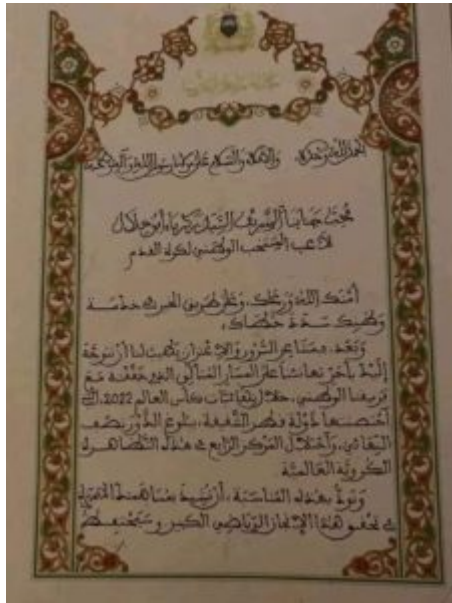 الحمد لله وحده والصلاة والسلام على مولانا رسول الله وآله وصحبه
محبنا جنابنا الشريف السيد زكرياء أبو خلال
لاعب المنتخب الوطني لكرة القدم
أمنك الله ورعاك، وعلى طريق الخير في خدمة
وطنك سدد خطاك؛
وبعد، فمما يبعث السرور والاعتزاز يطيب لنا أن نتوجه
إليك بأحر تهانئنا على المسار المثالي الذي حققته مع
فريقنا الوطني، خلال نهائيات كأس العالم 2022، التي
احتضنتها دولة قطر الشقيقة، ببلوغ الدور نصف
النهائي، واحتلال المركز الرابع في هذه التظاهرة
الكروية العالمية
ونود بهذه المناسبة، أن نشيد بمساهمتك القيمة
في تحقيق هذا الإنجاز الرياضي الكبير